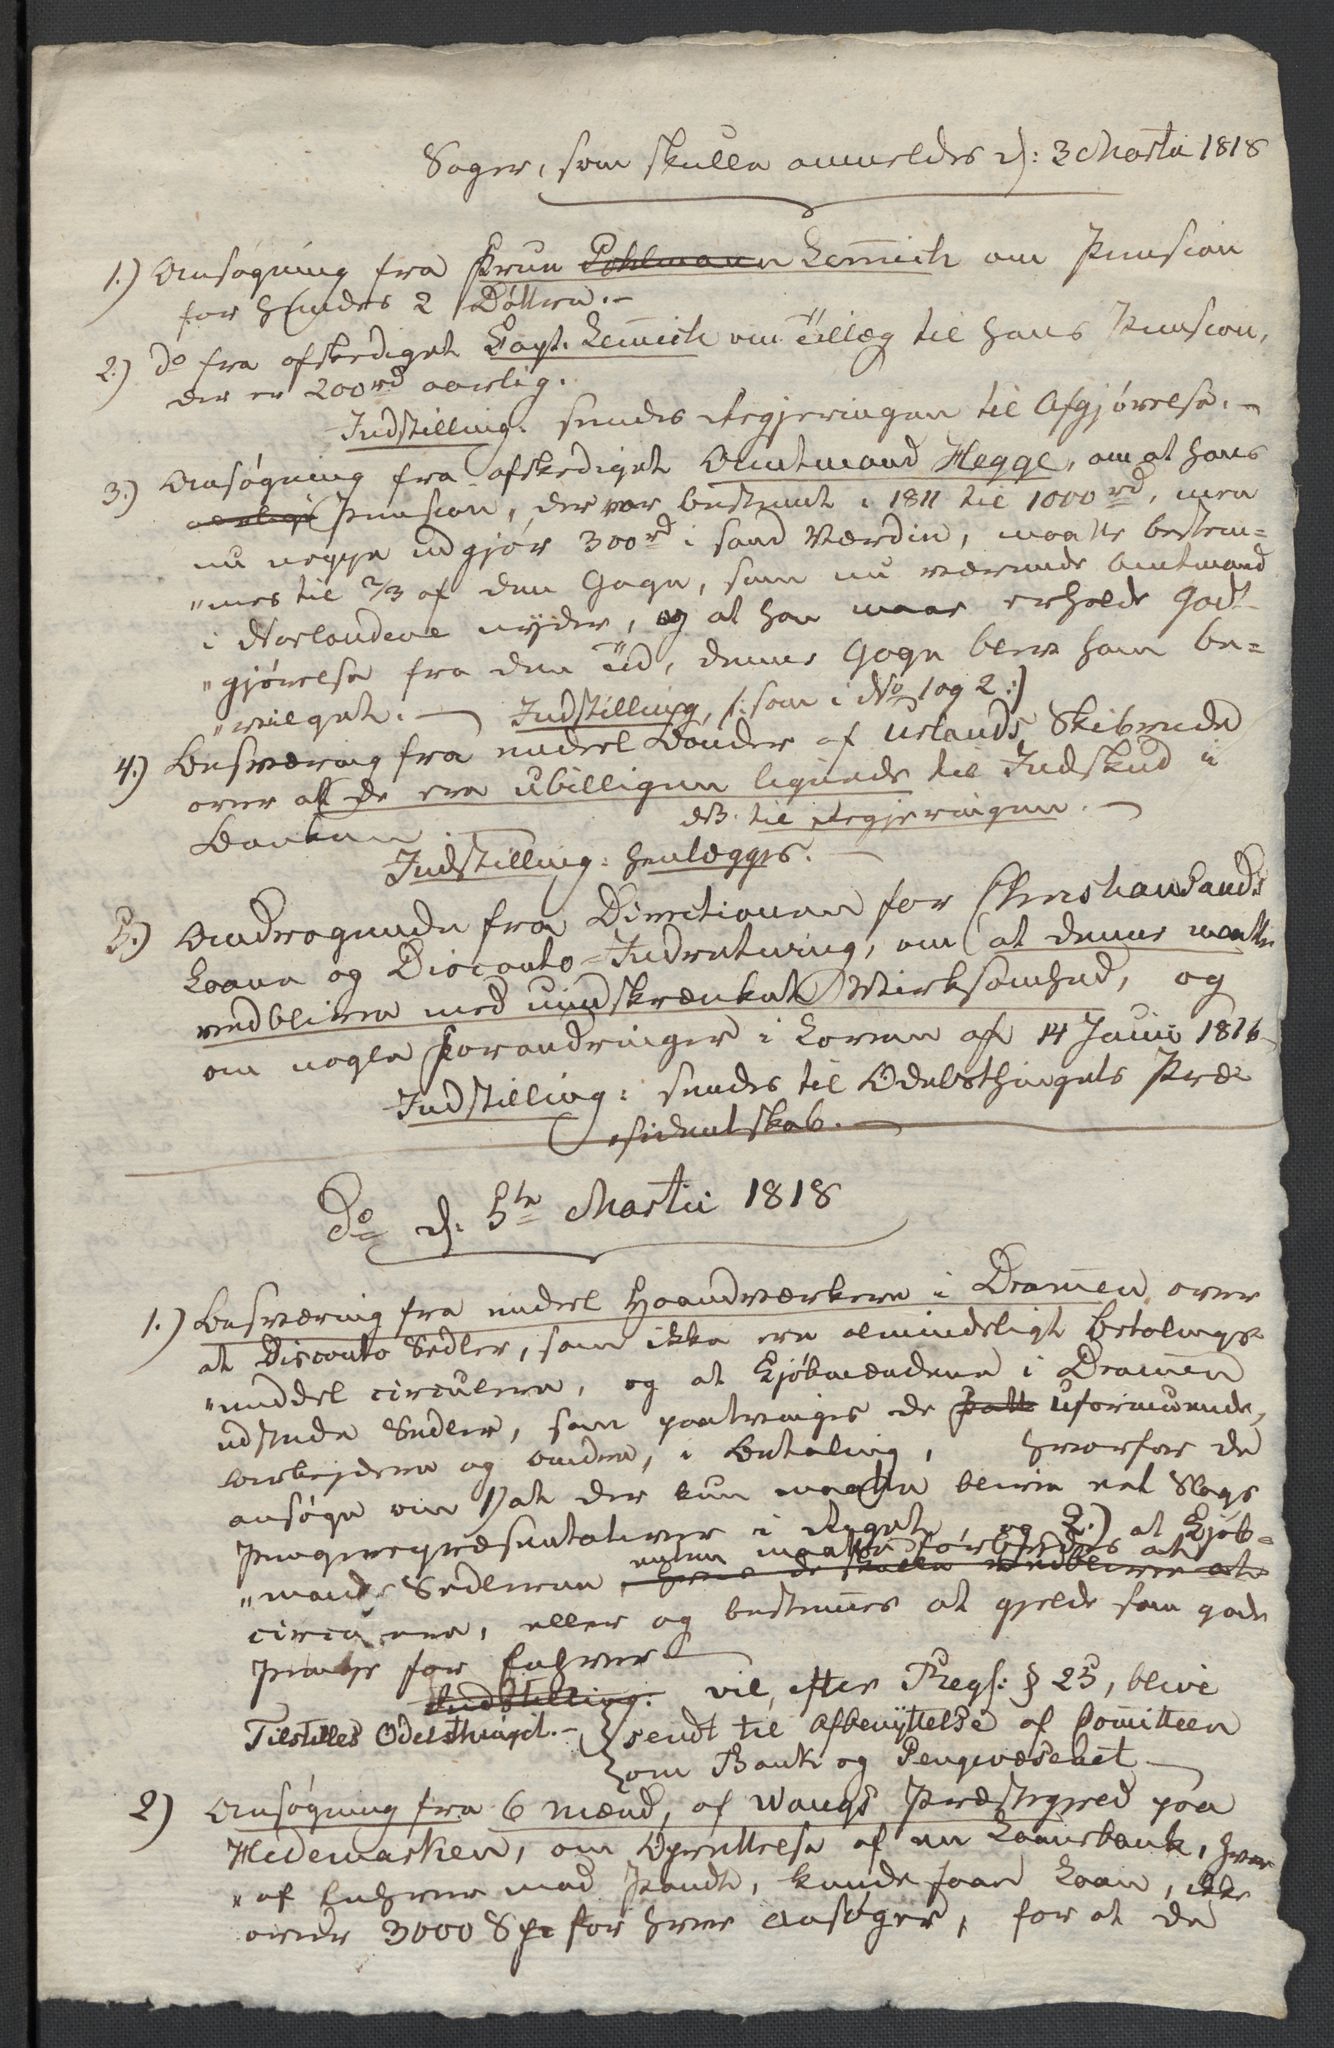 Sager, som skulle anmeldes d: 3 Martii 1818
1.) Ansøgning fra Frue Pohlmann Lemich om Pension
for hendes 2 Døttre.-
2.) do fra afskediget Capt. Lemich om Tillæg til hans Pension,
der er 200 rd aarlig.
Indstilling: sendes Regjeringen til Afgjørelse.-
3.) Ansøgning fra afskediget Amtmand Hegge, om at hans
aarlige Pension, der var bestemt i 1811 til 1000 rd, men
nu neppe udgjør 300 rd i sand Værdie, maatte bestem=
"mes til 2/3 af den Gage, som nu værende Amtmand
i Norlandene nyder, og at han maae erholde Godt-
"gjørelse fra den Tid, denne Gage blev ham be=
"vilget.- Indstilling, /: som i No 1 og 2 :/
4.) Besværing fra endeel Bønder af Urlands Skibrede
over at de ere ubilligen lignede til Indskud i
Banken NB. til Regjeringen.-
Indstilling: henlægges.-
5.) Andragende fra Directionen for Christiansands
Laane og Disconto-Indretning, om at denne maatte
vedblive med uindskrænket Virksomhed, og
om nogle Forandringer i Loven af 14 Junii 1816
Indstilling: sendes til Odelsthingets Præ-
sidentskab.-
Do d: 5te Martii 1818
1.) Besværing fra endeel Haandværkere i Dramen over
at Disconto Sedler, som ikke ere almindeligt Betalings-
"middel circulere, og at Kjøbmændene i Dramen
udstede Sedler, som paatvinges de Fatt uformuende,
Arbejdere og andre, i Betaling, hvorfor de
ansøge om 1) at der kun maatte blive eet Slags
Pengerepræsentativer i Riget, og 2.) at Kjøb=
enten maatte forbydes at
"mands Sedlerne, hvis de skulle vedblive at
circulere, eller og bestemmes at gjelde som gode
Penge for Enhver.
Indstilling: vil, efter Regl: § 25, blive
Tilstilles Odelsthinget.- sendt til Afbenyttelse af Comitteen
om Bank og Pengevæsenet
2) Ansøgning fra 6 Mænd, af Wangs Præstegield paa
Hedemarken, om Oprettelse af en Laanebank, hvor
"af Enhver mod Pandt, kunde faae Laan, ikke
over 3000 Spe for hver Ansøger, for at de